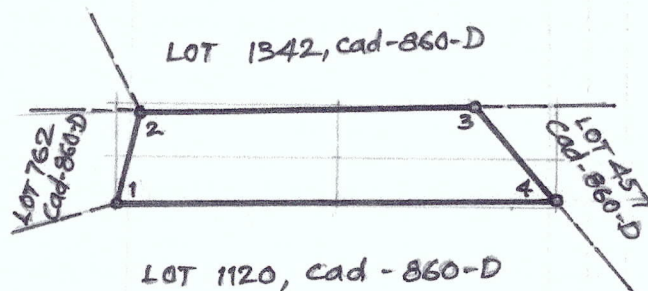 LOT 1342, Cad-860-D
2
3
LOT 762
Cad-860-D
LOT 457
Cad-860-D
1
4
LOT 1120, Cad - 860-D